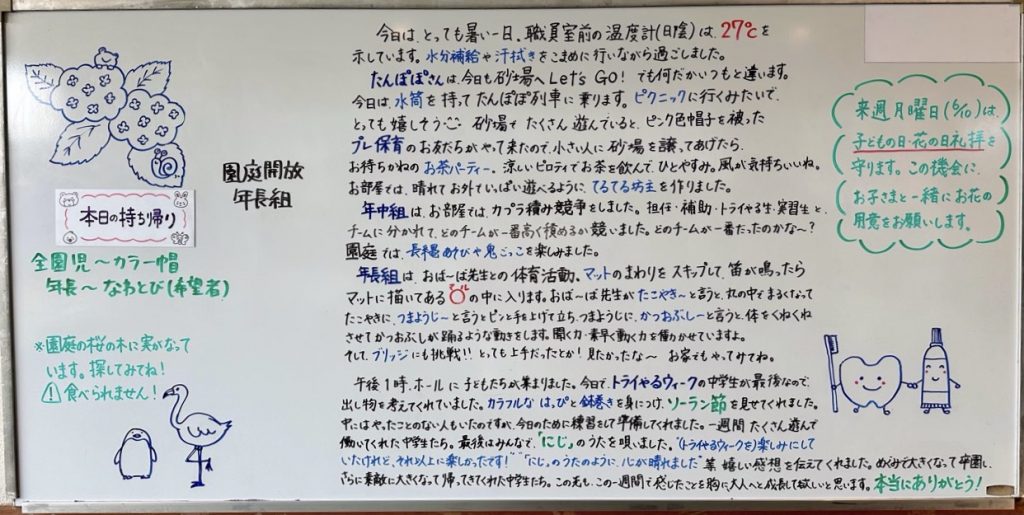 今日は、とっても暑い一日。職員室前の温度計(日陰)は、27℃を
示しています。水分補給や汗拭きをこまめに行いながら過ごしました。
たんぽぽさんは、今日も砂場へLet's GO! でも何だかいつもと違います。
今日は、水筒を持ってたんぽぽ列車に乗ります。ピクニックに行くみたいで、
とっても嬉しそう 砂場でたくさん遊んでいると、ピンク色帽子を被った
プレ保育のお友だちがやって来たので、小さい人に砂場を譲ってあげたら、
お待ちかねのお茶パーティー。涼しいピロティでお茶を飲んで、ひとやすみ。風が気持ちいいね。
お部屋では、晴れてお外でいっぱい遊べるように、てるてる坊主を作りました。
年中組は、お部屋では、カプラ積み競争をしました。担任・補助・トライやる生・実習生と、
チームに分かれて、どのチームが一番高く積めるか競いました。どのチームが一番だったのかな~?
園庭では、長縄あそびや鬼ごっこを楽しみました。
年長組は、おば~ば先生との体育活動。マットのまわりをスキップして、笛が鳴ったら
マットに描いてある の中に入ります。おば~ば先生が たこやき~と言うと、丸の中でまるくなって
たこやきに、つまようじ~と言うとピンと手を上げて立ち、つまようじに、かつおぶし~と言うと、体をくねくね
させてかつおぶしが踊るような動きをします。聞く力・素早く動く力を働かせていますよ。
そして、ブリッジにも挑戦!! とっても上手だったとか!見たかったな~ お家でもやってみてね。
午後1時、ホールに子どもたちが集まりました。今日で、トライやるウィークの中学生が最後なので、
出し物を考えてくれていました。カラフルな はっぴと鉢巻きを身につけ、ソーラン節を見せてくれました。
中にはやったことのない人もいたのですが、今日のために練習をして準備してくれました。一週間たくさん遊んで
働いてくれた中学生たち。最後はみんなで、「にじ」のうたを唄いました。"(トライやるウィークを)楽しみにして
いたけれど、それ以上に楽しかったです!" "「にじ」のうたのように、心が晴れました"等 嬉しい感想を伝えてくれました。めぐみで大きくなって卒園し、
さらに素敵に大きくなって帰ってきてくれた中学生たち。この先も、この一週間で感じたことを胸に大人へと成長して欲しいと思います。本当にありがとう!
園庭開放
年長組
本日の持ち帰り
全園児~カラー帽
年長~なわとび(希望者)
※園庭の桜の木に実がなって
います。探してみてね!
⚠食べられません!
来週月曜日(6/10)は、
子どもの日・花の日礼拝を
守ります。この機会に、
お子さまと一緒にお花の
用意をお願いします。